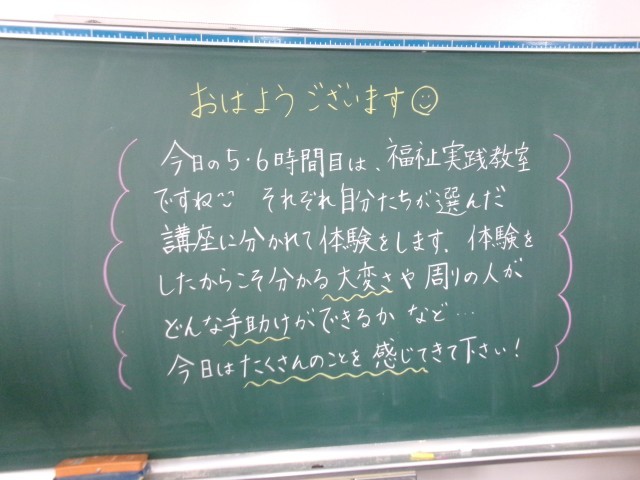 おはようございます☺
今日の5・6時間目は、福祉実践教室
ですね☺ それぞれ自分たちが選んだ
講座に分かれて体験をします。体験を
したからこそ分かる大変さや周りの人が
どんな手助けができるかなど…
今日はたくさんのことを感じてきて下さい!